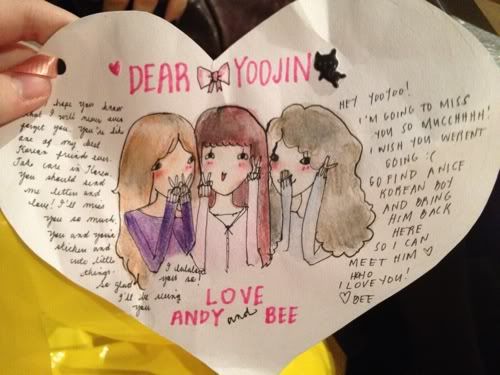 DEAR YOOJIN
I hope you know
that I will never ever
forget you. You're like
one of my best
Korean friends ever.
Take care in Korea.
You should send
me letters and
love! I'll miss
you so much,
you and your
stickers and
cute little
things.
So glad
I'll be seeing
you
I
you so!
HEY YOOYOO!
I'M GOING TO MISS
YOU SO MUCCHHHH!
I WISH YOU WERENT
GOING :(
GO FIND A NICE
KOREAN BOY
AND BRING
HIM BACK
HERE
SO I CAN
MEET HIM ♡
HAHO
I LOVE YOU!
♡ BEE
LOVE
ANDY and BEE